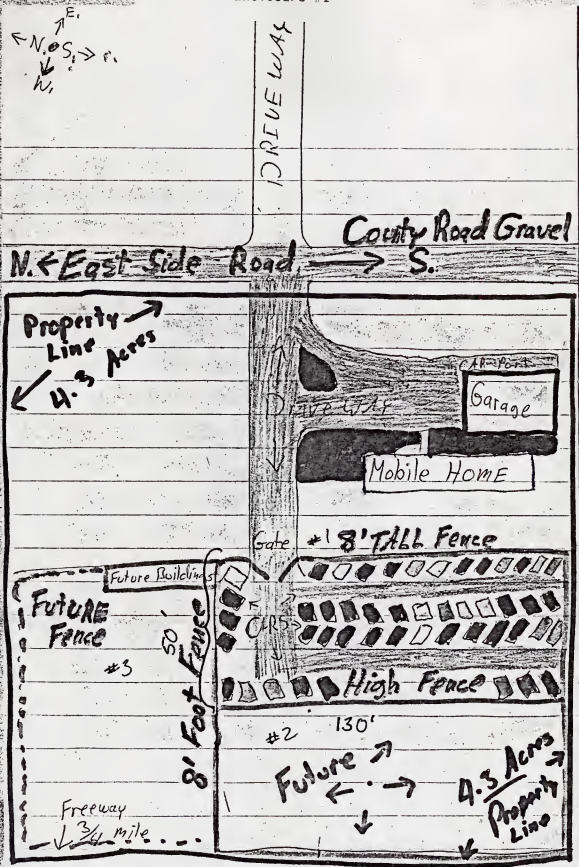 E.
N. S.
W.
DRIVEWAY
County Road Gravel
N. ← East Side Road → S.
Property
Line
4.3 Acres
CARPORT
Garage
DriveWAY
Mobile HomE
Gate #1 8' TALL Fence
Future Buildings
FuTuRE
Fence
#3
50'
8' Foot Fence
CARS
High Fence
130'
#2
Future
4.3 Acres
Property
Line
Freeway
3/4 mile